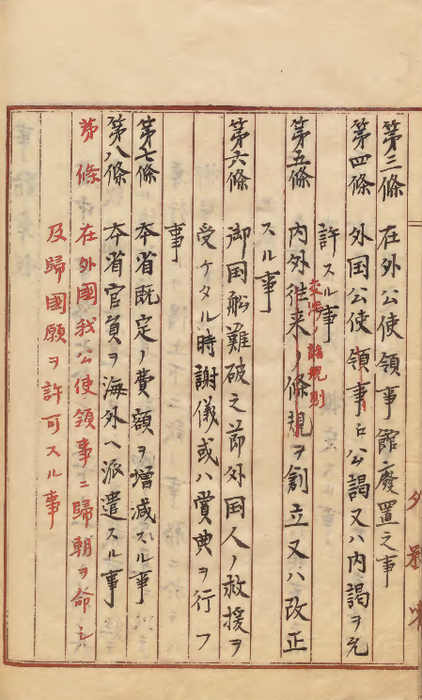 第三條 在外公使領事館廢置之事
第四條 外国公使領事ニ公謁又ハ内謁ヲ允
許スル事
交際ノ諸規則
第五條 内外往来ノ條規ヲ創立又ハ改正
スル事
第六條 御国船難破之節外国人ノ救援ヲ
受ケタル時謝儀或ハ賞典ヲ行フ
事
第七條 本省既定ノ費額ヲ増減スル事
第八條 本省官員ヲ海外ヘ派遣スル事
第 條 在外國我公使領事ニ歸朝ヲ命シ
及歸國願ヲ許可スル事